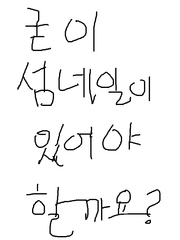 굳이
섬네일이
있어야
할까요?